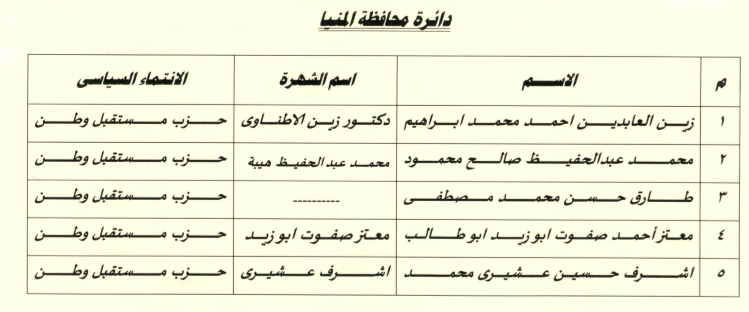 دائرة محافظة المنيا
م الاسم اسم الشهرة الانتماء السياسى
١ زين العابدين احمد محمد ابراهيم دكتور زين الاطناوى حزب مستقبل وطن
٢ محمد عبدالحفيظ صالح محمود محمد عبد الحفيظ هيبة حزب مستقبل وطن
٣ طارق حسن محمد مصطفى ---------- حزب مستقبل وطن
٤ معتز أحمد صفوت ابو زيد ابو طالب معتز صفوت ابو زيد حزب مستقبل وطن
٥ اشرف حسين عشيرى محمد اشرف عشيرى حزب مستقبل وطن